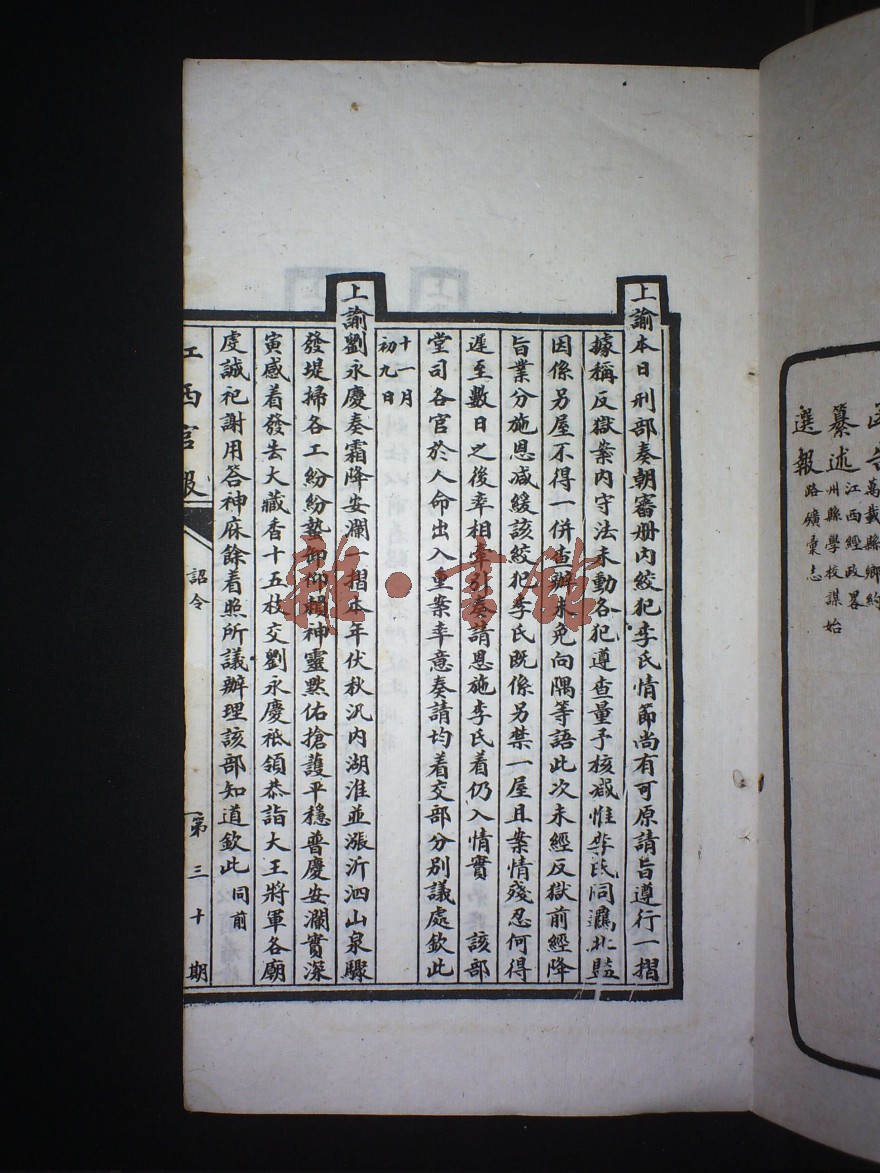 函告萬載縣鄉約
纂述江西經政畧
州縣學校謀始
選報路礦彙志
上諭本日刑部奏朝審册內絞犯李氏情節尚有可原請旨遵行一摺
據稱反獄案內守法未動各犯遵查量予核減惟李氏同羈北監
因係另屋不得一併查辦未免向隅等語此次未經反獄前經降
旨業分施恩減緩該絞犯李氏既係另禁一屋且案情殘忍何得
遲至數日之後率相牽引奏請恩施李氏着仍入情實 該部
堂司各官於人命出入重案率意奏請均着交部分別議處欽此
十一月
初九日
上諭劉永慶奏霜降安瀾一摺本年伏秋汛內湖淮並漲沂泗山泉驟
發堤掃各工紛紛墊卸仰賴神靈默佑搶護平穩普慶安瀾實深
寅感着發去大藏香十五枝交劉永慶祗領恭詣大王將軍各廟
虔誠祀謝用答神庥餘着照所議辦理該部知道欽此 同前
江西官報 詔令 第三十期
雜·書館